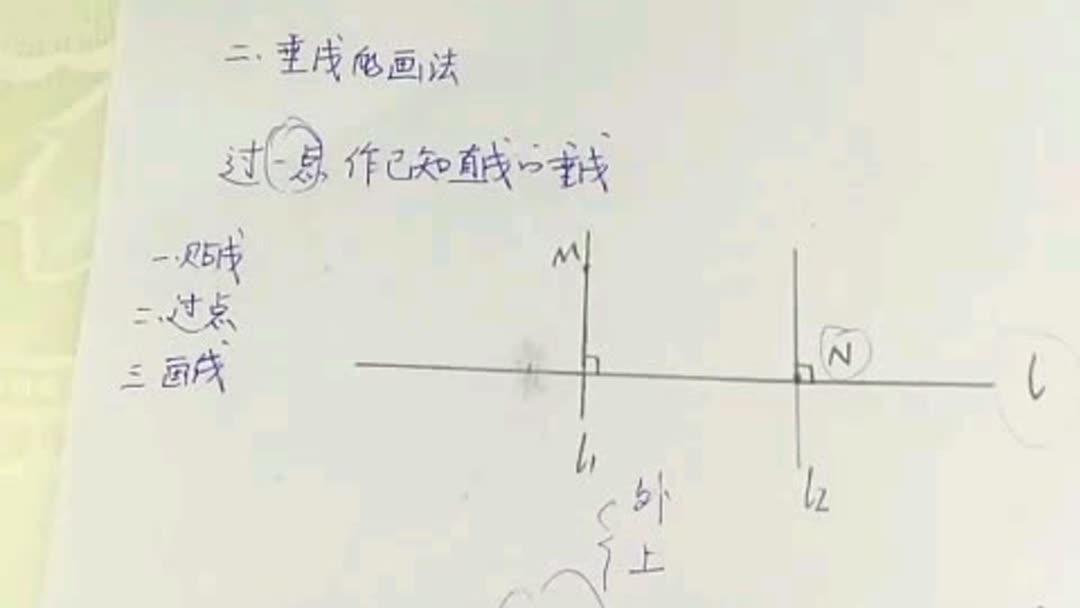 二.垂线的画法
过一点作已知直线的垂线
一.贴线
二.过点
三画线
M
N
l
l₁
l₂
外
上